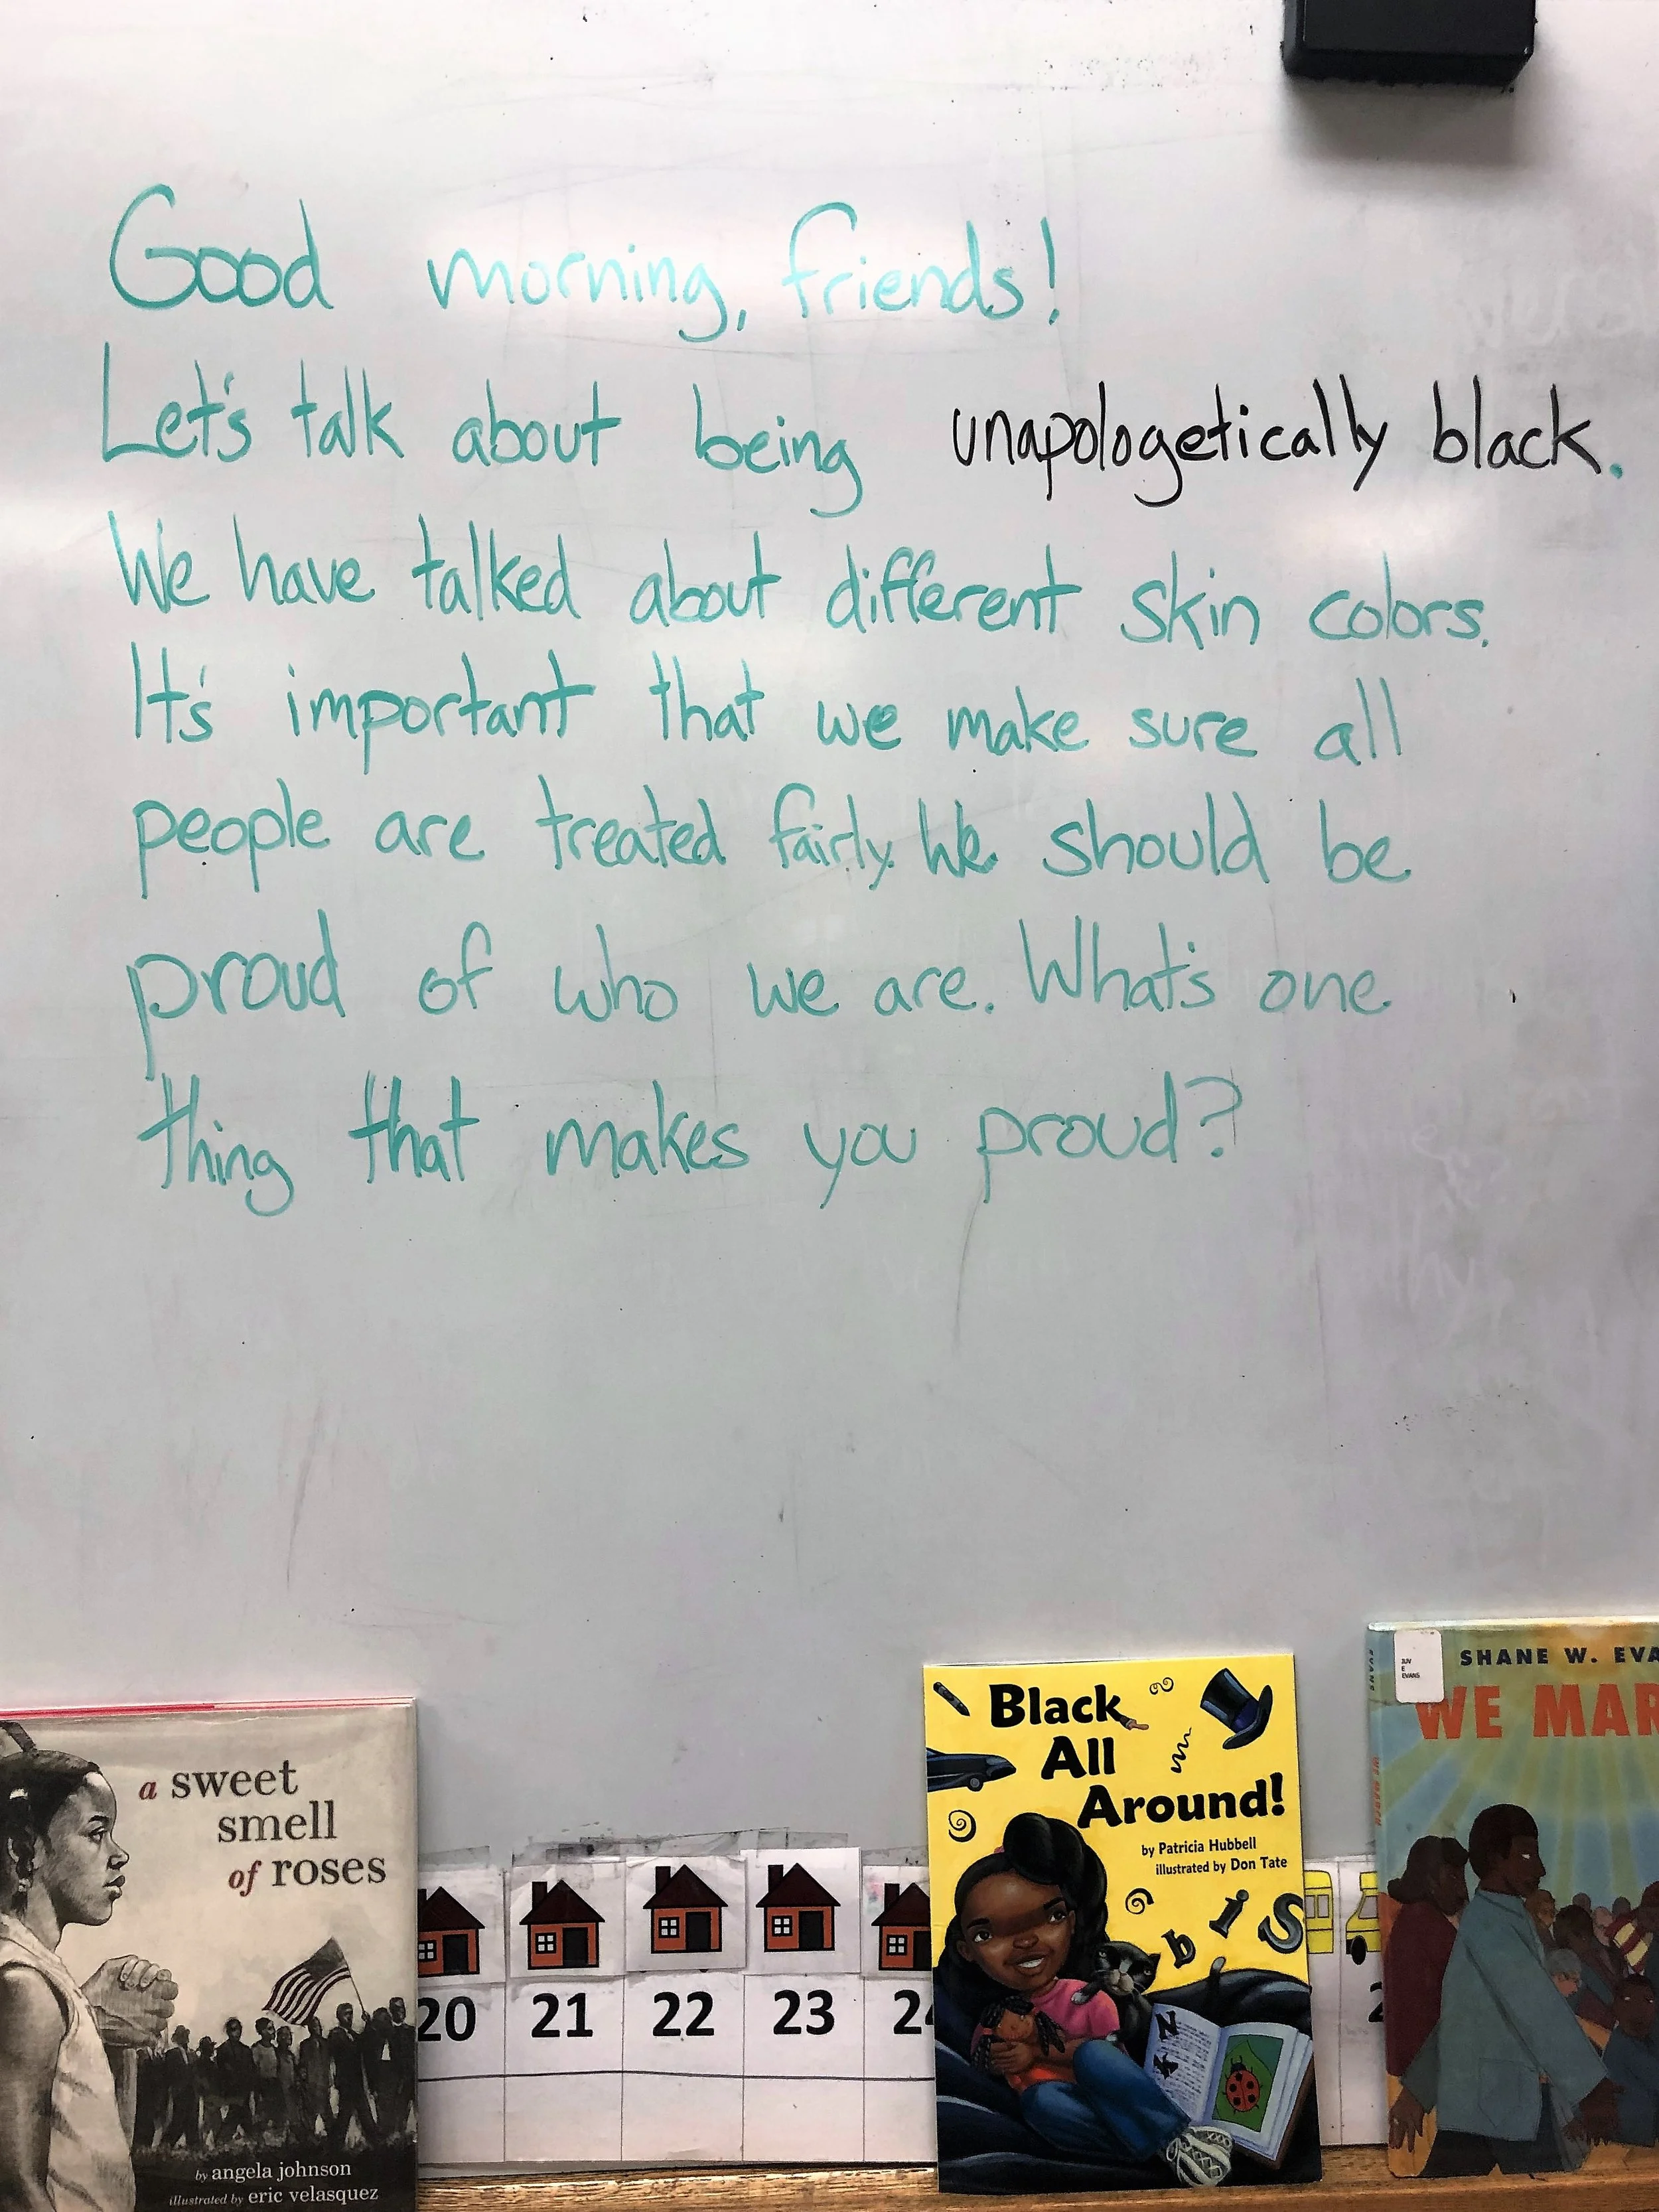 Good morning, friends!
Let's talk about being unapologetically black.
We have talked about different skin colors.
It's important that we make sure all
people are treated fairly. We should be
proud of who we are. What's one
thing that makes you proud?
a sweet
smell
of roses
by angela johnson
illustrated by eric velasquez
20 21 22 23 24
Black
All
Around!
by Patricia Hubbell
illustrated by Don Tate
b i S
N
K
JUV
E
EVANS
EVANS
SHANE W. EVA
WE MAR
WE MARCH
2